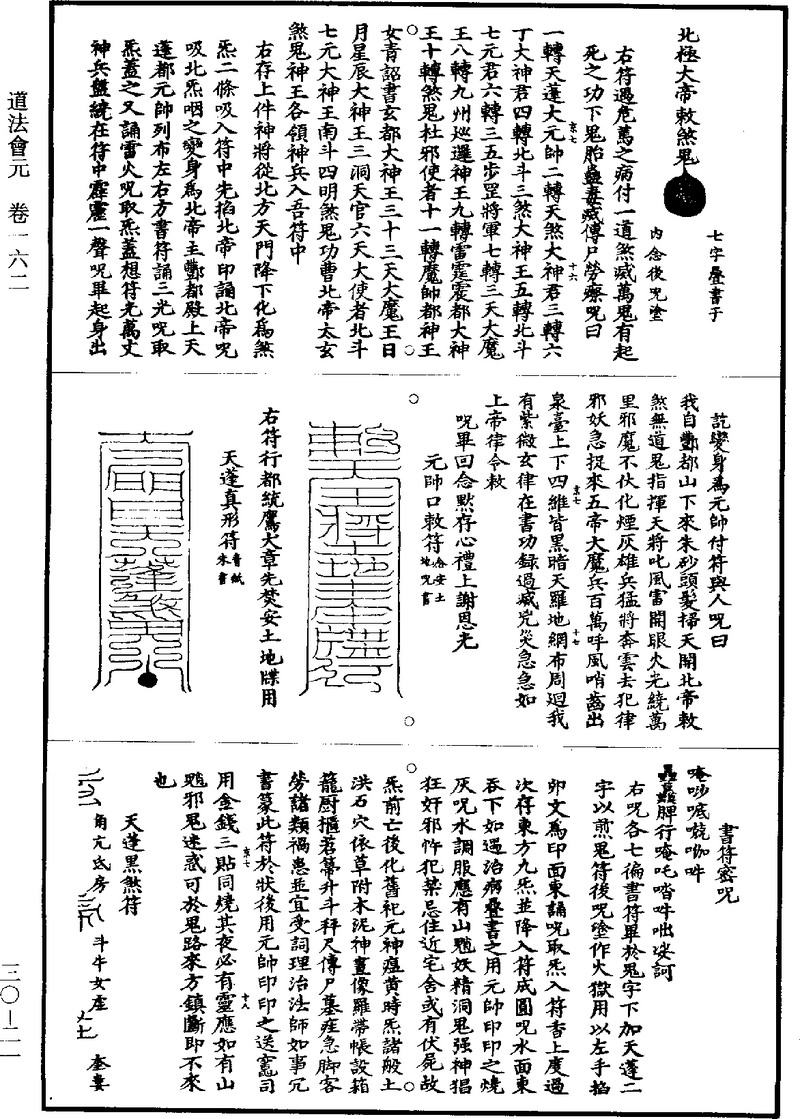 道法會元　卷一六二
北極大帝敕煞鬼
七字疊書于
內念後呪塗
右符遇危篤之病付一道煞滅萬鬼有起
死之功下鬼胎蠱毒滅傳尸勞瘵呪曰
一轉天蓬大元帥二轉天煞大神君三轉六
丁大神君四轉北斗三煞大神王五轉北斗
七元君六轉三五步罡將軍七轉三天大魔
王八轉九州巡邏神王九轉雷霆震都大神
王十轉煞鬼杜邪使者十一轉魔帥都神王
女青詔書玄都大神王三十三天大魔王日
月星辰大神王三洞天官六天大使者北斗
七元大神王南斗四明煞鬼功曹北帝太玄
煞鬼神王各領神兵入吾符中
右存上件神將從北方天門降下化為煞
炁二條吸入符中先掐北帝印誦北帝呪
吸北炁咽之變身為北帝主酆都殿上天
蓬都元帥列布左右方書符誦三光呪取
炁蓋之又誦雷火呪取炁蓋想符光萬丈
神兵盤繞在符中霹靂一聲呪畢起身出
訖變身為元帥付符與人呪曰
我自酆都山下來朱砂頭髮掃天開北帝敕
煞無道鬼指揮天將叱風雷開眼火光繞萬
里邪魔不伏化煙灰雄兵猛將奔雲去犯律
邪妖急捉來五帝大魔兵百萬呼風哨齒出
泉臺上下四維皆黑暗天羅地網布周迴我
有紫微玄律在書功錄過滅兇災急急如
上帝律令敕
呪畢回念默存心禮上謝恩光
元帥口敕符念安土地呪書
右符行都統鷹犬章先焚安土地牒用
天蓬真形符青紙朱書
書符密呪
右呪各七徧書符畢於鬼字下加天蓬二
字以煎鬼符後呪塗作火獄用以左手掐
卯文為印面東誦呪取炁入符香上度過
次存東方九炁並降入符成圓呪水面東
吞下如遇治病疊書之用元帥印印之燒
灰呪水調服應有山魈妖精洞鬼强神猖
狂奸邪忤犯禁忌住近宅舍或有伏屍故
炁前亡後化舊祀元神瘟黃時炁諸般土
洪石穴依草附水泥神畫像羅帶帳設箱
籠厨櫃若箒升斗秤尺傳尸墓疰急脚客
勞諸類禍患並宜受詞理治法師如事冗
書篆此符於狀後用元帥印印之送憲司
用金錢三貼同燒其夜必有靈應如有山
魈邪鬼迷惑可於鬼路來方鎮斷即不來
也
天蓬黑煞符
角亢氐房
斗牛女虛
奎婁
三〇－二一